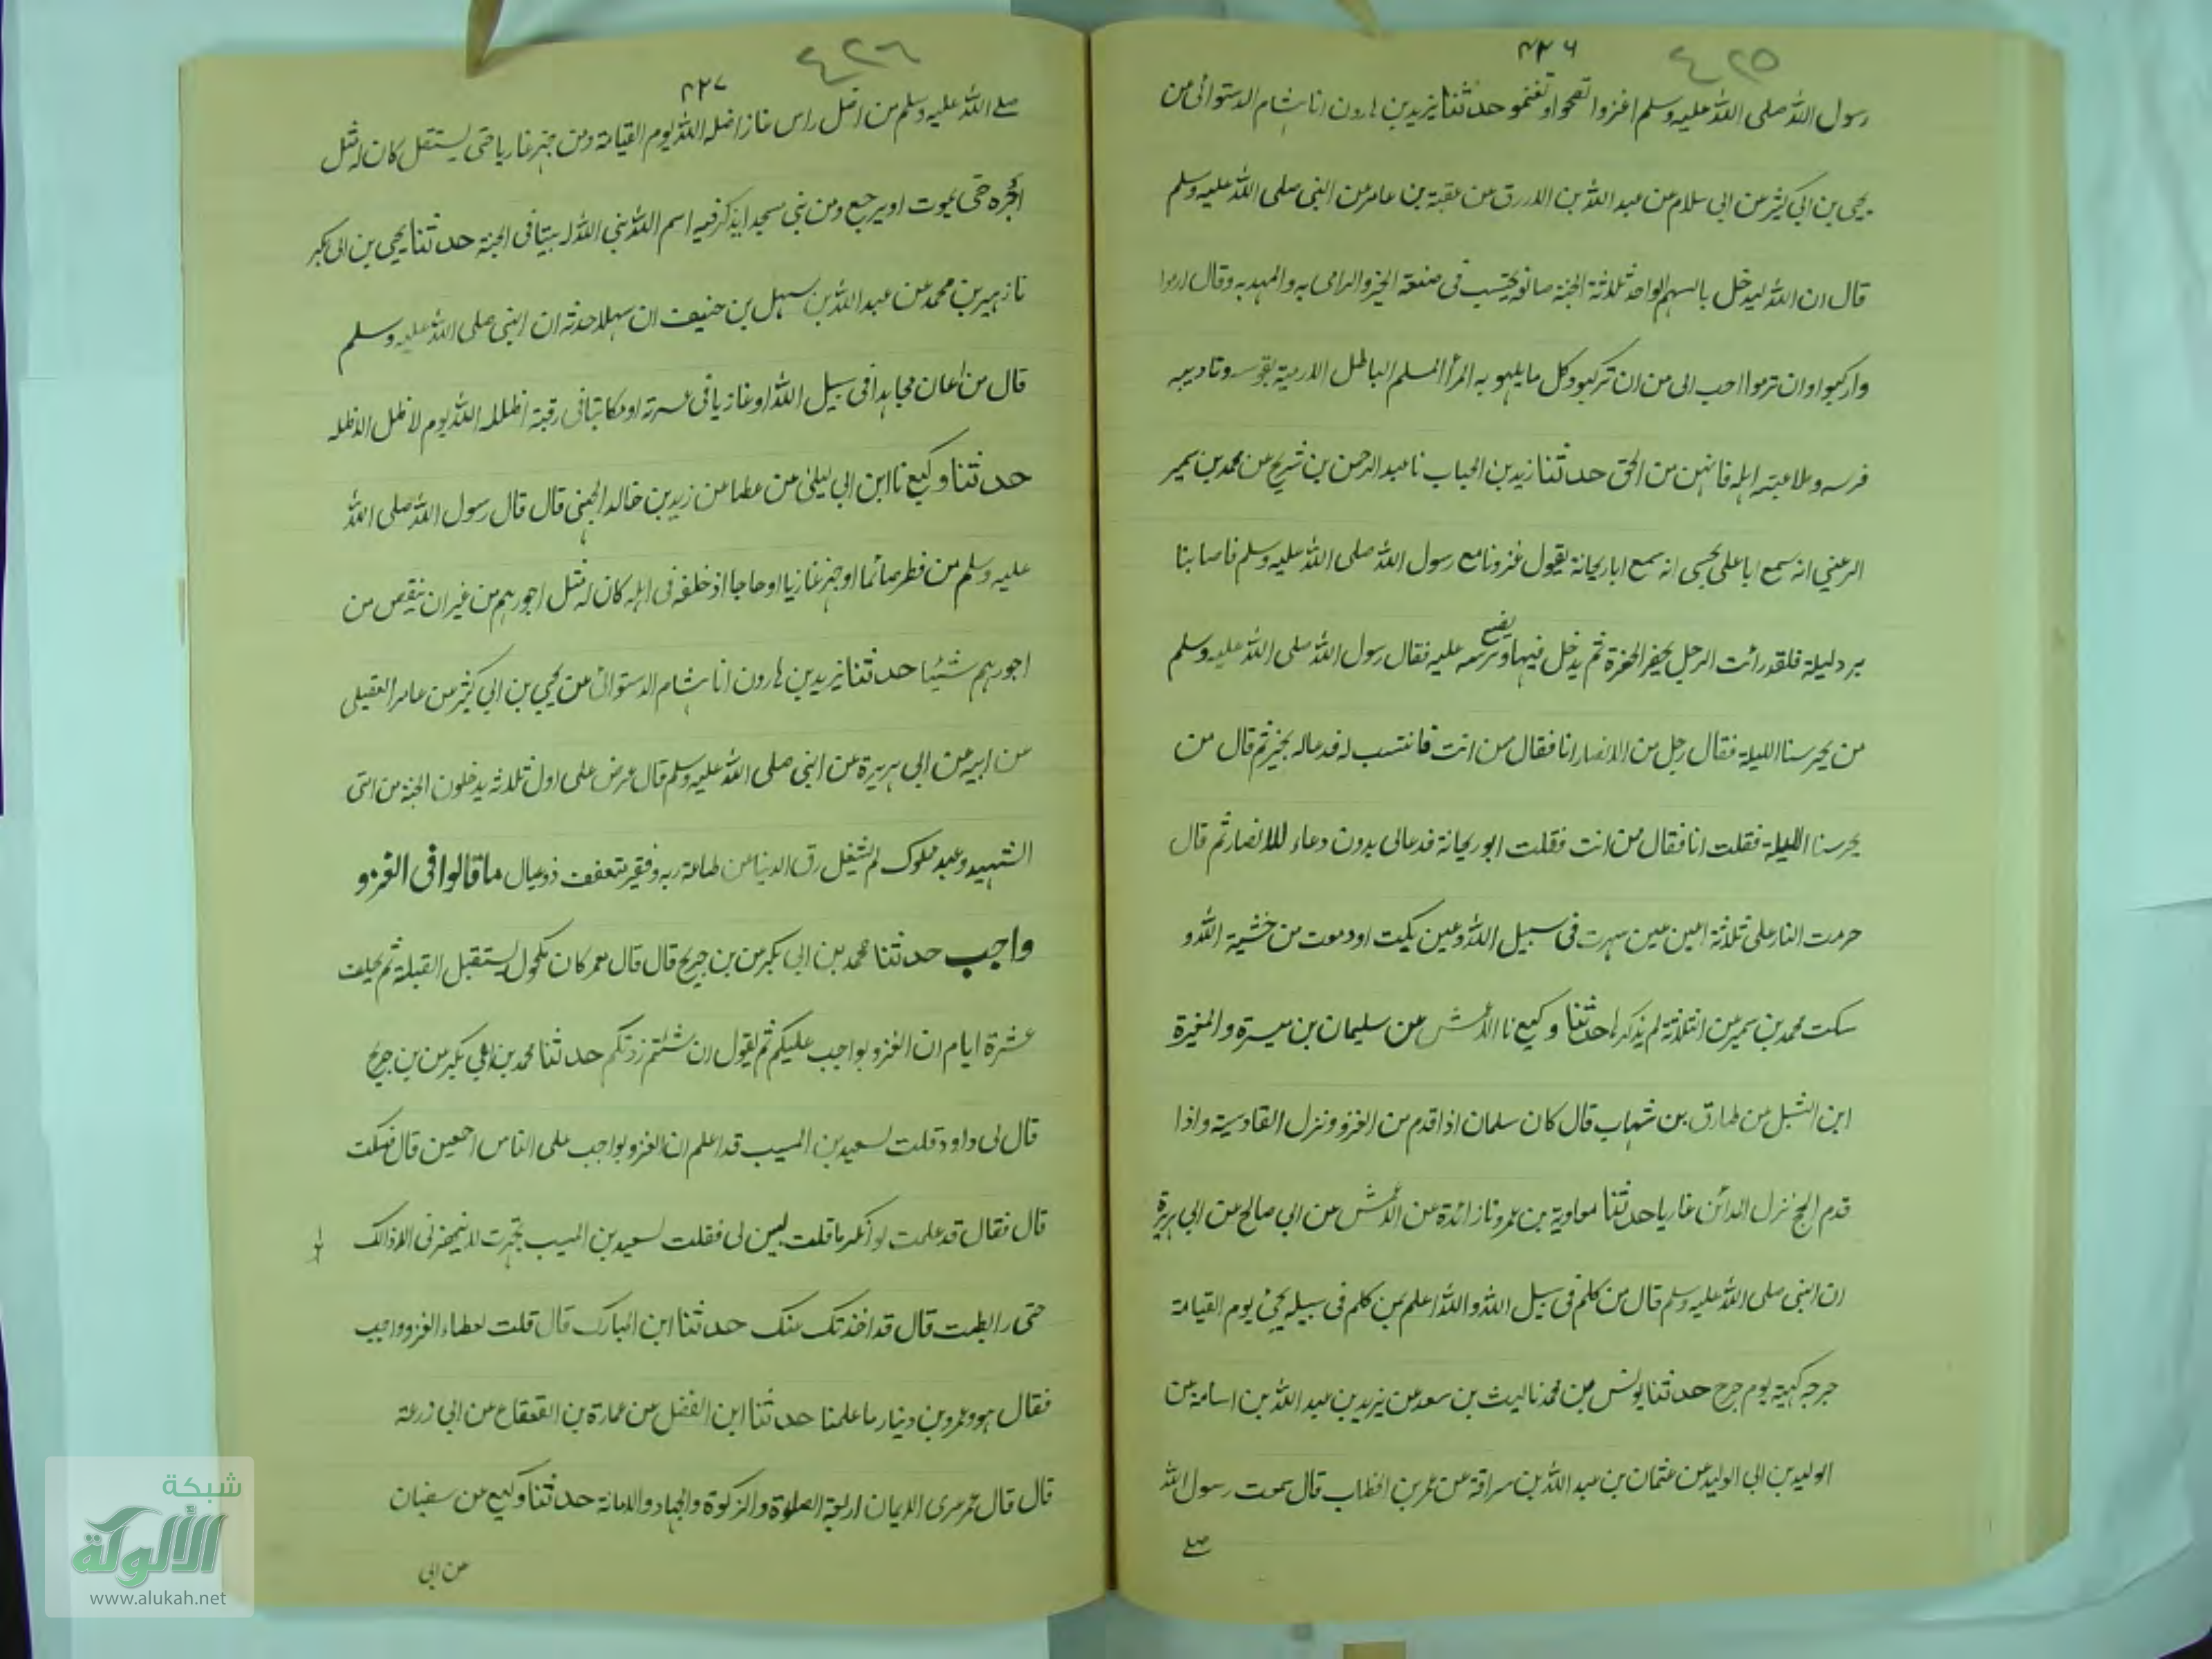 ٤٢٥
٤٢٦
رسول الله صلى الله عليه وسلم اغزوا تصحوا وتغنموا حدثنا يزيد بن هارون انا هشام الدستوائى عن
يحيى بن ابى كثير عن ابى سلام عن عبد الله بن الازرق عن عقبة بن عامر عن النبى صلى الله عليه وسلم
قال ان الله ليدخل بالسهم الواحد ثلاثة الجنة صانعه يحتسب فى صنعة الخير والرامى به والممد به وقال ارموا
واركبوا وان ترموا احب الى من ان تركبوا وكل ما يلهو به المرأ المسلم الباطل الا رميه بقوسه وتاديبه
فرسه وملاعبته اهله فانهن من الحق حدثنا زيد بن الحباب نا عبد الرحمن بن شريح عن محمد بن سمير
الرعينى انه سمع ابا على انه سمع ابا ريحانة يقول غزونا مع رسول الله صلى الله عليه وسلم فاصابنا
برد ليلة فلقد رائت الرجل يحفر الحفرة ثم يدخل فيها ويضع ترسه عليه فقال رسول الله صلى الله عليه وسلم
من يحرسنا الليلة فقال رجل من الانصار انا فقال من انت فانتسب له فدعا له بخير ثم قال من
يحرسنا الليلة فقلت انا فقال من انت فقلت ابو ريحانة فدعالى بدون دعاء للانصار ثم قال
حرمت النار على ثلاثة اعين عين سهرت فى سبيل الله وعين بكيت او دمعت من خشية الله و
سكت محمد بن سمير عن الثلاثة لم يذكرها حدثنا وكيع نا الاعمش عن سليمان بن ميسرة والمغيرة
ابن الشبل عن طارق بن شهاب قال كان سلمان اذا قدم من الغزو نزل القادسية واذا
قدم الحج نزل المدائن غازيا حدثنا معاوية بن عمرو نا زائدة عن الاعمش عن ابى صالح عن ابى هريرة
ان النبى صلى الله عليه وسلم قال من كلم فى سبيل الله والله اعلم بمن كلم فى سبيله يجئ يوم القيامة
جرحه كهيئة يوم جرح حدثنا يونس بن محمد نا ليث بن سعد عن يزيد بن عبد الله بن اسامة عن
الوليد بن ابى الوليد عن عثمان بن عبد الله بن سراقة عن عمر بن الخطاب قال سمعت رسول الله
صلے
٤٢٦
٤٢٧
صلے الله عليه وسلم من اظل راس غاز اظله الله يوم القيامة ومن جهز غازيا حتى يستقل كان له مثل
اجره حتى يموت او يرجع ومن بنى مسجدا يذكر فيه اسم الله بنى الله له بيتا فى الجنة حدثنا يحيى بن ابى بكير
نا زهير بن محمد عن عبد الله بن سهل بن حنيف ان سهلا حدثه ان النبى صلى الله عليه وسلم
قال من اعان مجاهدا فى سبيل الله او غازيا فى عسرته او مكاتبا فى رقبته اظلله الله يوم لا ظل الا ظله
حدثنا وكيع نا ابن ابى ليلى عن عطا عن زيد بن خالد الجهنى قال قال رسول الله صلى الله
عليه وسلم من فطر صائما او جهز غازيا او حاجا او خلفه فى اهله كان له مثل اجورهم من غير ان ينقص من
اجورهم شيئا حدثنا يزيد بن هارون انا هشام الدستوائى عن يحيى بن ابى كثير عن عامر العقيلى
عن ابيه عن ابى هريرة عن النبى صلى الله عليه وسلم قال عرض على اول ثلاثة يدخلون الجنة من امتى
الشهيد وعبد مملوك لم يشغله رق الدنيا عن طاعة ربه وفقير متعفف ذو عيال ما قالوا فى الغزو
واجب حدثنا محمد بن ابى بكر عن بن جريج قال قال معمر كان مكحول يستقبل القبلة ثم يحلف
عشرة ايام ان الغزو بواجب عليكم ثم يقول ان شئتم زدتكم حدثنا محمد بن بكر عن بن جريج
قال لى داود قلت لسعيد بن المسيب قد اعلم ان الغزو بواجب على الناس اجمعين قال فسكت
قال فقال قد علمت لو انكر ما قلت لبين لى فقلت لسعيد بن المسيب تجهزت لا ينهضنى الا ذالك
حتى رابطت قال قد اخذتك عنك حدثنا ابن المبارك قال قلت لعطاء الغزو واجب
فقال هو وعمرو بن دينار ما علمنا حدثنا ابن الفضل عن عمارة بن القعقاع عن ابى زرعة
قال قال عمر عرى الايمان اربعة الصلوة والزكوة والجهاد والامانة حدثنا وكيع عن سفيان
عن ابى
شبكة
الألوكة
www.alukah.net